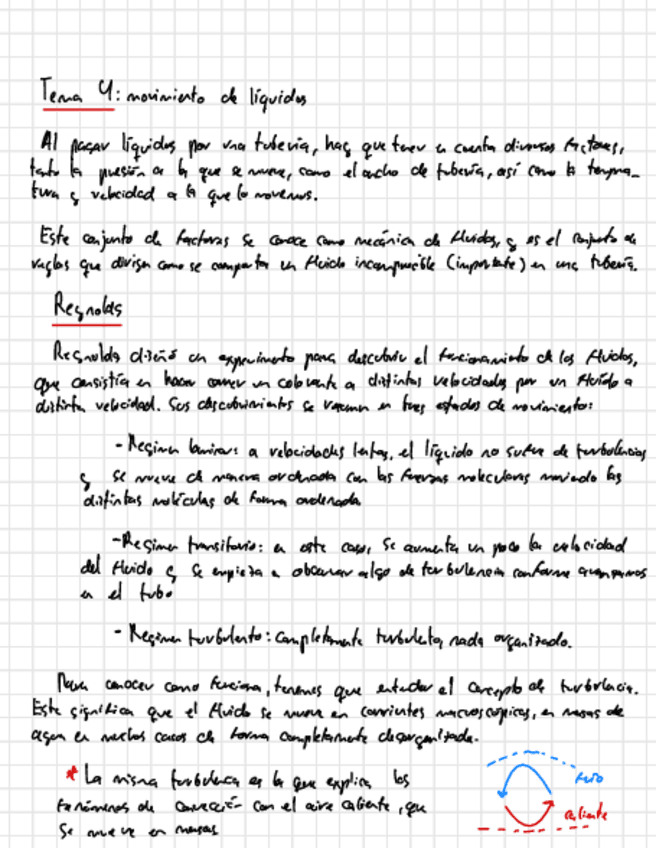 Tema 4: movimiento de líquidos
Al pasar líquidos por una tubería, hay que tener en cuenta diversos factores,
tanto la presión a la que se mueve, como el ancho de tubería, así como la tempera-
tura y velocidad a la que lo movemos.
Este conjunto de factores se conoce como mecánica de fluidos, y es el conjunto de
reglas que como se comporta un fluido incompresible (importante) en una tubería.
Reynolds
Reynolds diseñó un experimento para descubrir el funcionamiento de los fluidos,
que consistía en hacer correr un colorante a distintas velocidades por un fluido a
distinta velocidad. Sus descubrimientos se resumen en tres estados de movimiento:
- Regimen laminar: a velocidades lentas, el líquido no sufre de turbulencias
y se mueve de manera ordenada con las fuerzas moleculares moviendo las
distintas moléculas de forma ordenada
- Regimen transitorio: en este caso, se aumenta un poco la velocidad
del fluido y se empieza a observar algo de turbulencia conforme avanzamos
en el tubo
- Regimen turbulento: completamente turbulento, nada organizado.
Para conocer como funciona, tenemos que entender el concepto de turbulencia.
Este significa que el fluido se mueve en corrientes macroscópicas, en masas de
agua en muchos casos de forma completamente desorganizada.
* La misma turbulencia es la que explica los
fenómenos de convección con el aire caliente, que
se mueve en masas
frío
caliente